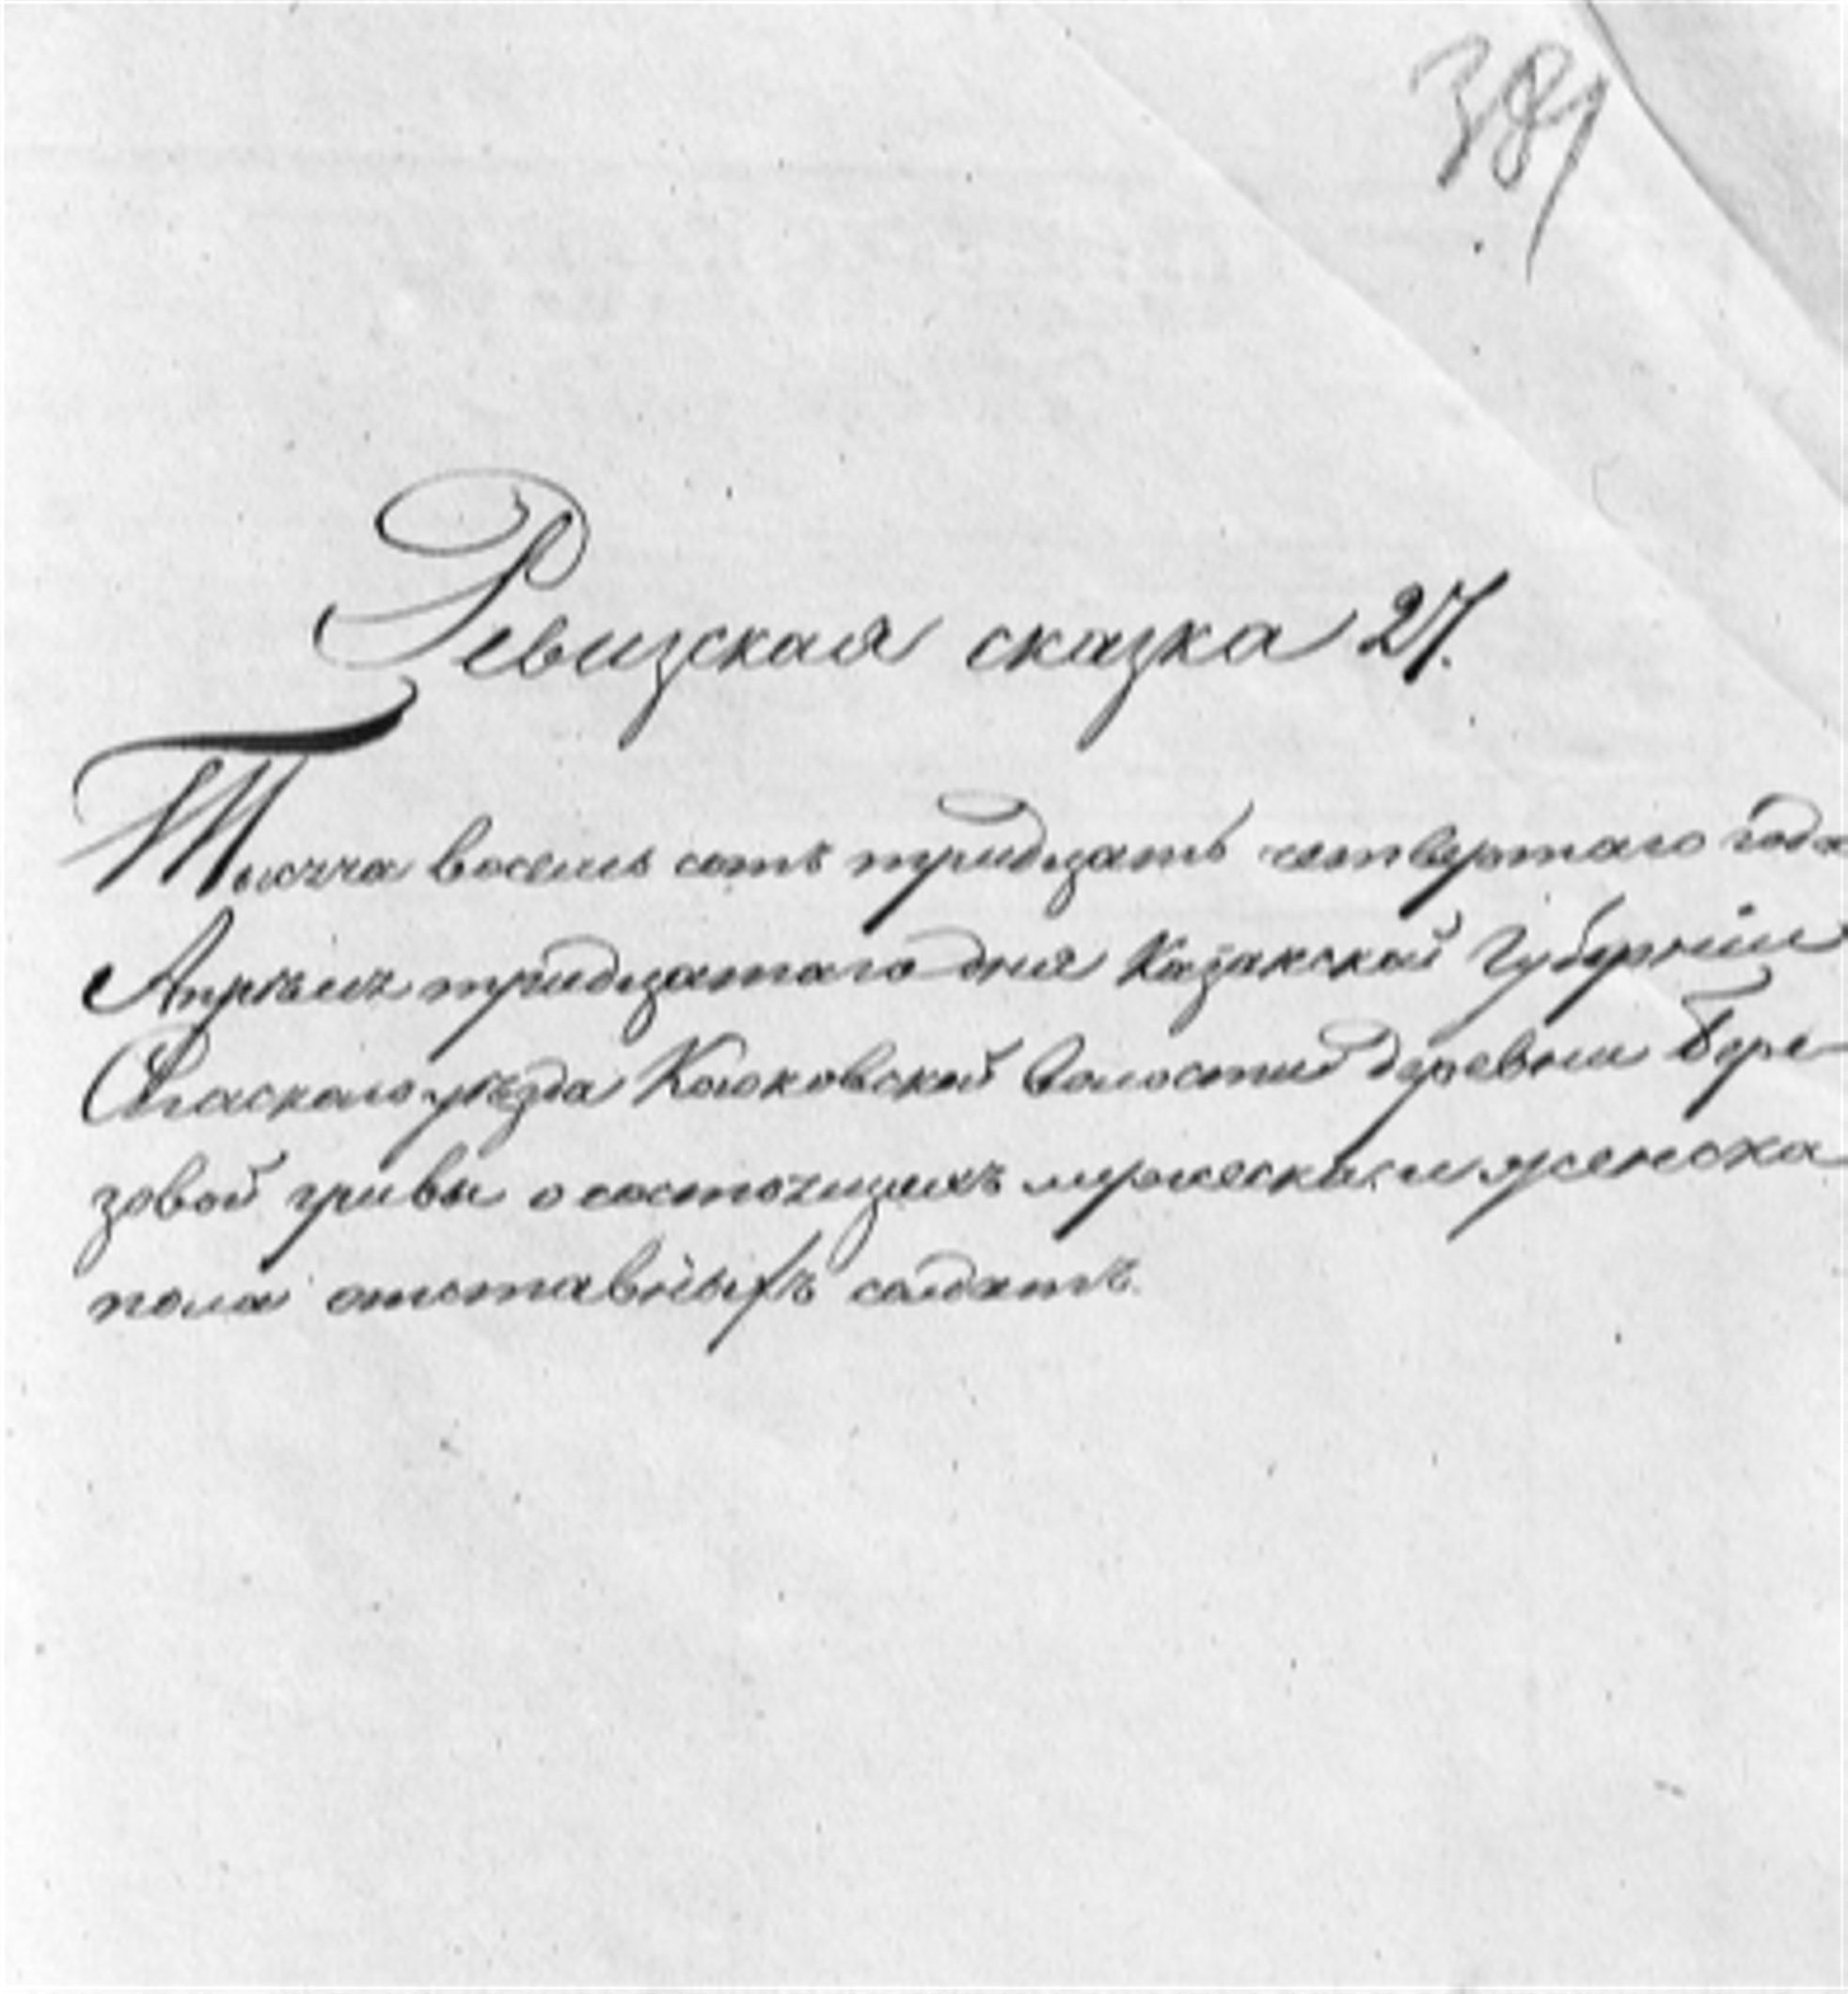 381
Ревизская сказка 27.
Тысяча восемь сотъ тридцать четвертаго года
Апрѣля тридцатаго дня Казанской Губерніи
Спаскаго уѣзда Кококовской Волости деревни Бере-
зовой гривы о состоящихъ мужеска и женска
пола отставныхъ солдатъ.